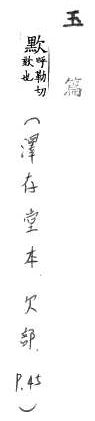 玉篇
呼勒切
欬也
（澤存堂本．欠部．P.45）